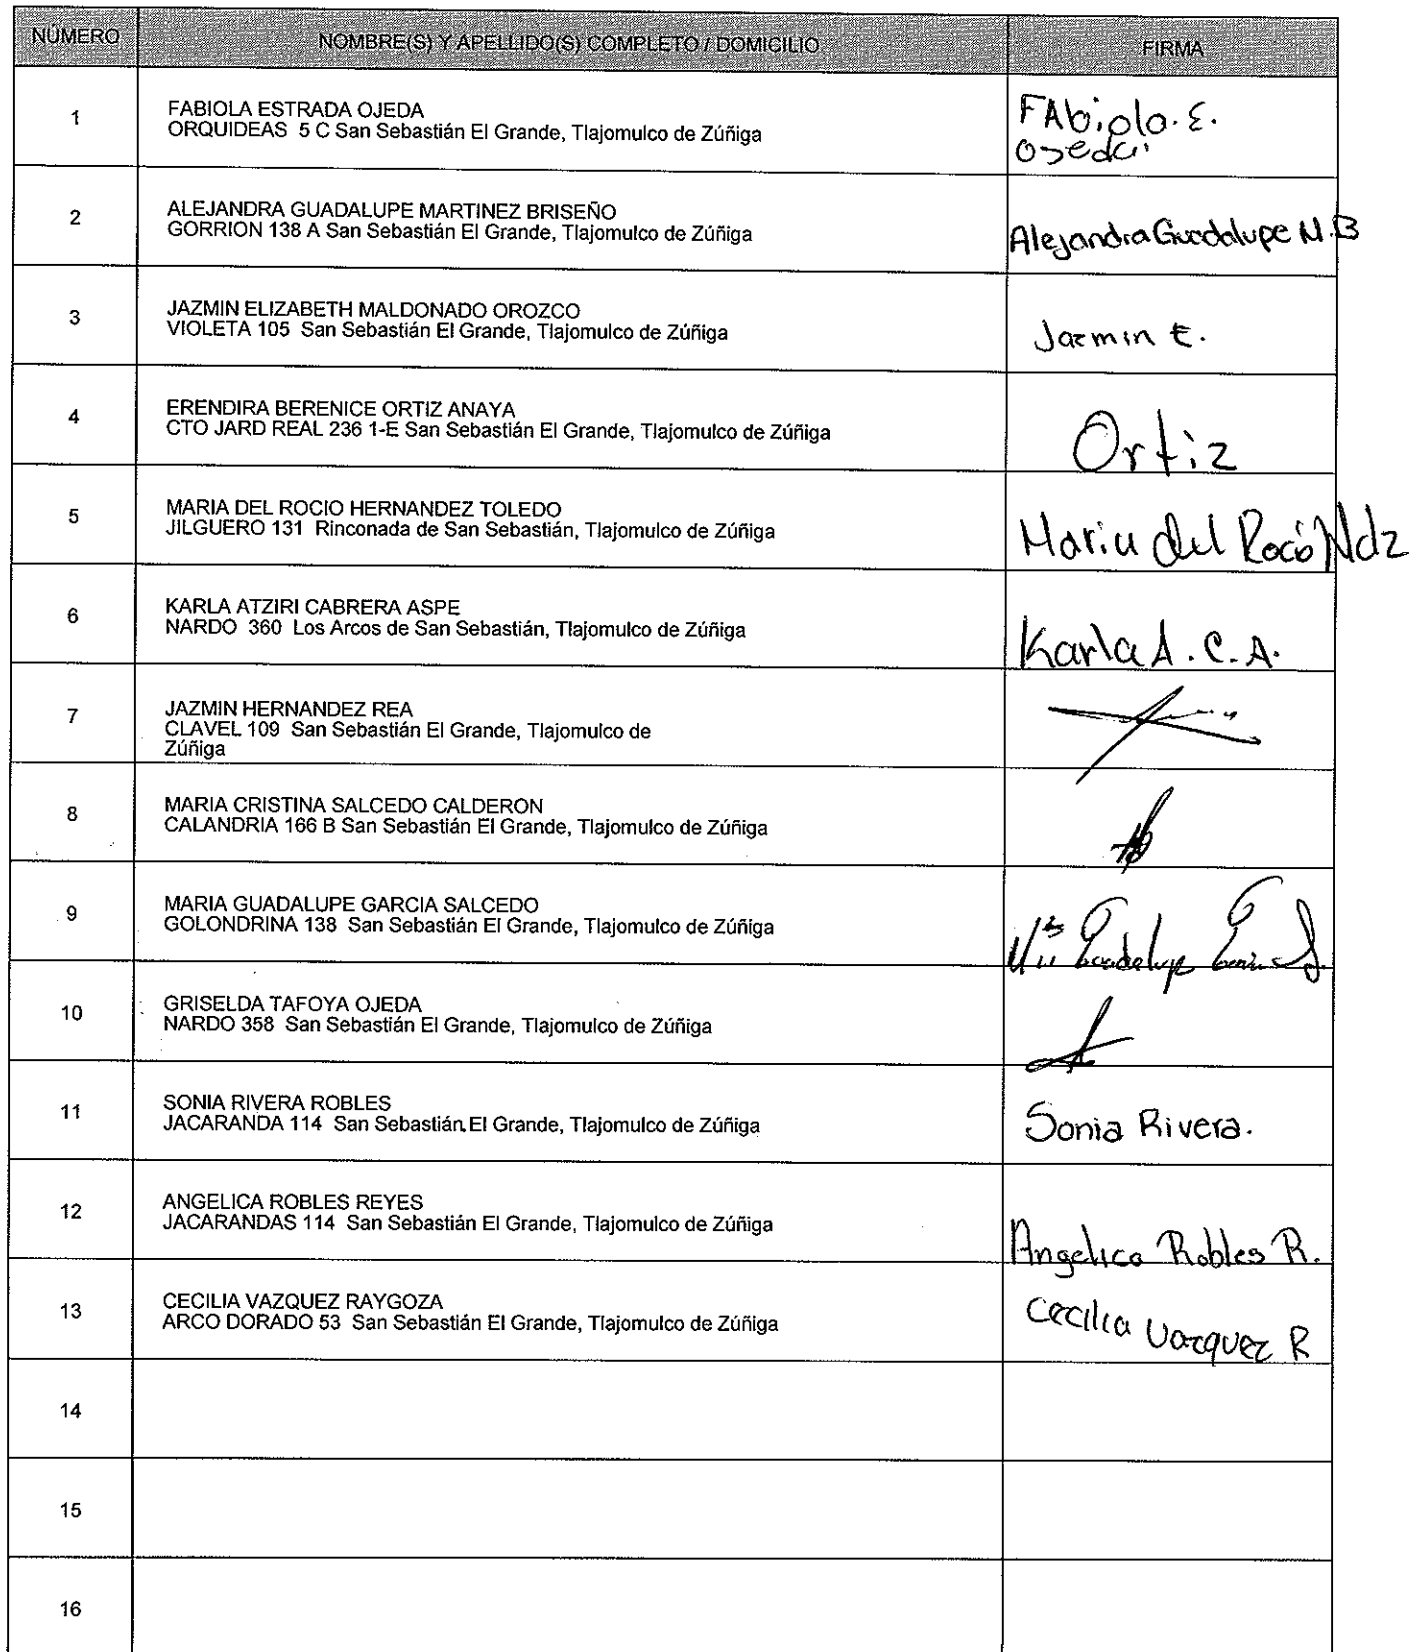 NÚMERO NOMBRE(S) Y APELLIDO(S) COMPLETO / DOMICILIO FIRMA
1 FABIOLA ESTRADA OJEDA
ORQUIDEAS 5 C San Sebastián El Grande, Tlajomulco de Zúñiga
FAbiola. E.
Ojeda
2 ALEJANDRA GUADALUPE MARTINEZ BRISEÑO
GORRION 138 A San Sebastián El Grande, Tlajomulco de Zúñiga
Alejandra Guadalupe M.B
3 JAZMIN ELIZABETH MALDONADO OROZCO
VIOLETA 105 San Sebastián El Grande, Tlajomulco de Zúñiga
Jazmin E.
4 ERENDIRA BERENICE ORTIZ ANAYA
CTO JARD REAL 236 1-E San Sebastián El Grande, Tlajomulco de Zúñiga
Ortiz
5 MARIA DEL ROCIO HERNANDEZ TOLEDO
JILGUERO 131 Rinconada de San Sebastián, Tlajomulco de Zúñiga
Maria del Roció Hdz
6 KARLA ATZIRI CABRERA ASPE
NARDO 360 Los Arcos de San Sebastián, Tlajomulco de Zúñiga
Karla A. C. A.
7 JAZMIN HERNANDEZ REA
CLAVEL 109 San Sebastián El Grande, Tlajomulco de
Zúñiga
8 MARIA CRISTINA SALCEDO CALDERON
CALANDRIA 166 B San Sebastián El Grande, Tlajomulco de Zúñiga
9 MARIA GUADALUPE GARCIA SALCEDO
GOLONDRINA 138 San Sebastián El Grande, Tlajomulco de Zúñiga
Guadalupe
10 GRISELDA TAFOYA OJEDA
NARDO 358 San Sebastián El Grande, Tlajomulco de Zúñiga
11 SONIA RIVERA ROBLES
JACARANDA 114 San Sebastián El Grande, Tlajomulco de Zúñiga
Sonia Rivera.
12 ANGELICA ROBLES REYES
JACARANDAS 114 San Sebastián El Grande, Tlajomulco de Zúñiga
Angelica Robles R.
13 CECILIA VAZQUEZ RAYGOZA
ARCO DORADO 53 San Sebastián El Grande, Tlajomulco de Zúñiga
Cecilia Vazquez R
14
15
16